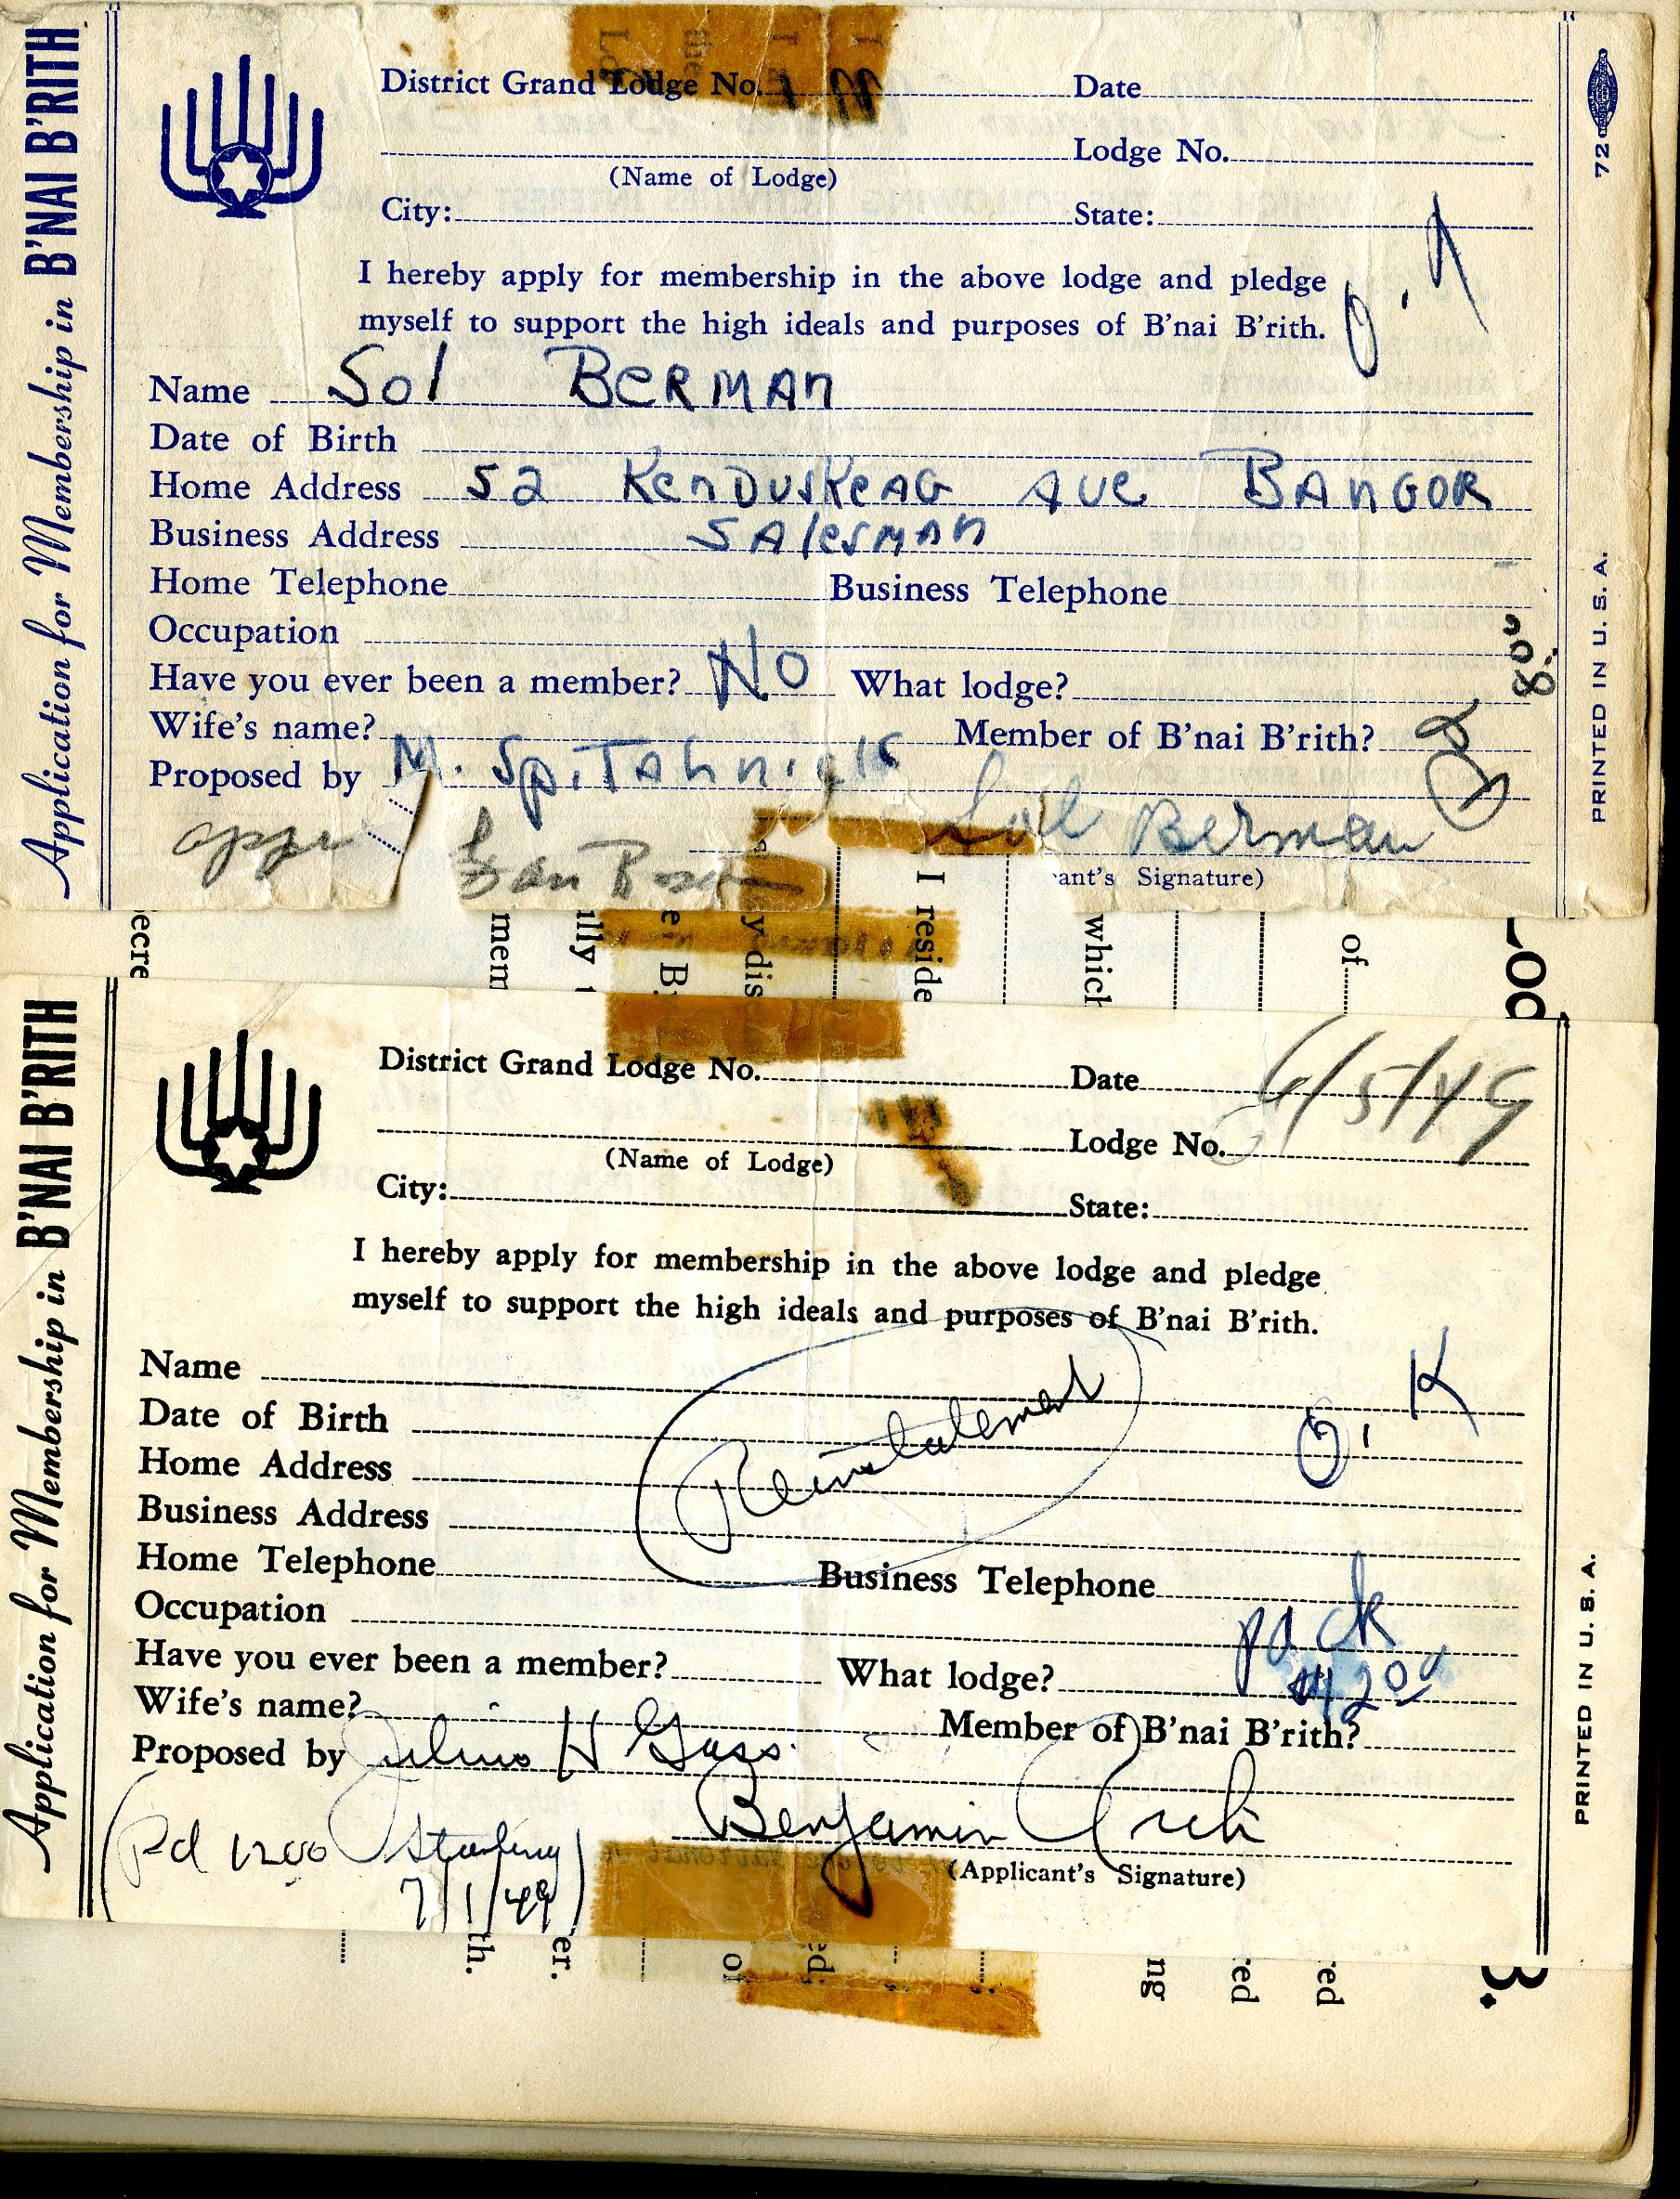 Application for Membership in B'NAI B'RITH
District Grand Lodge No. Date
Lodge No.
(Name of Lodge)
City: State:
I hereby apply for membership in the above lodge and pledge
myself to support the high ideals and purposes of B'nai B'rith.
O.K
Name Sol BERMAN
Date of Birth
Home Address 52 KENDUSKEAG AVE BANGOR
Business Address SALESMAN
Home Telephone Business Telephone
Occupation
Have you ever been a member? NO What lodge?
Wife's name? Member of B'nai B'rith?
Proposed by M. Spitahnick
Sol Berman
ant's Signature)
Pd 8.00
72
PRINTED IN U. S. A.
ecre
mem
illy
e B
y dis
I reside
which
of
LOD
Application for Membership in B'NAI B'RITH
District Grand Lodge No. Date 6/5/49
Lodge No.
(Name of Lodge)
City: State:
I hereby apply for membership in the above lodge and pledge
myself to support the high ideals and purposes of B'nai B'rith.
Name
Date of Birth
Home Address
Reinstatement
O.K
Business Address
Home Telephone Business Telephone
Occupation
pack
Have you ever been a member? What lodge?
Wife's name? Member of B'nai B'rith?
Proposed by Julius H Gass.
Benjamin
(Applicant's Signature)
(Pd 12.00 Starting
7/1/49)
PRINTED IN U. S. A.
th.
er.
of
ed;
ng
red
red
B.